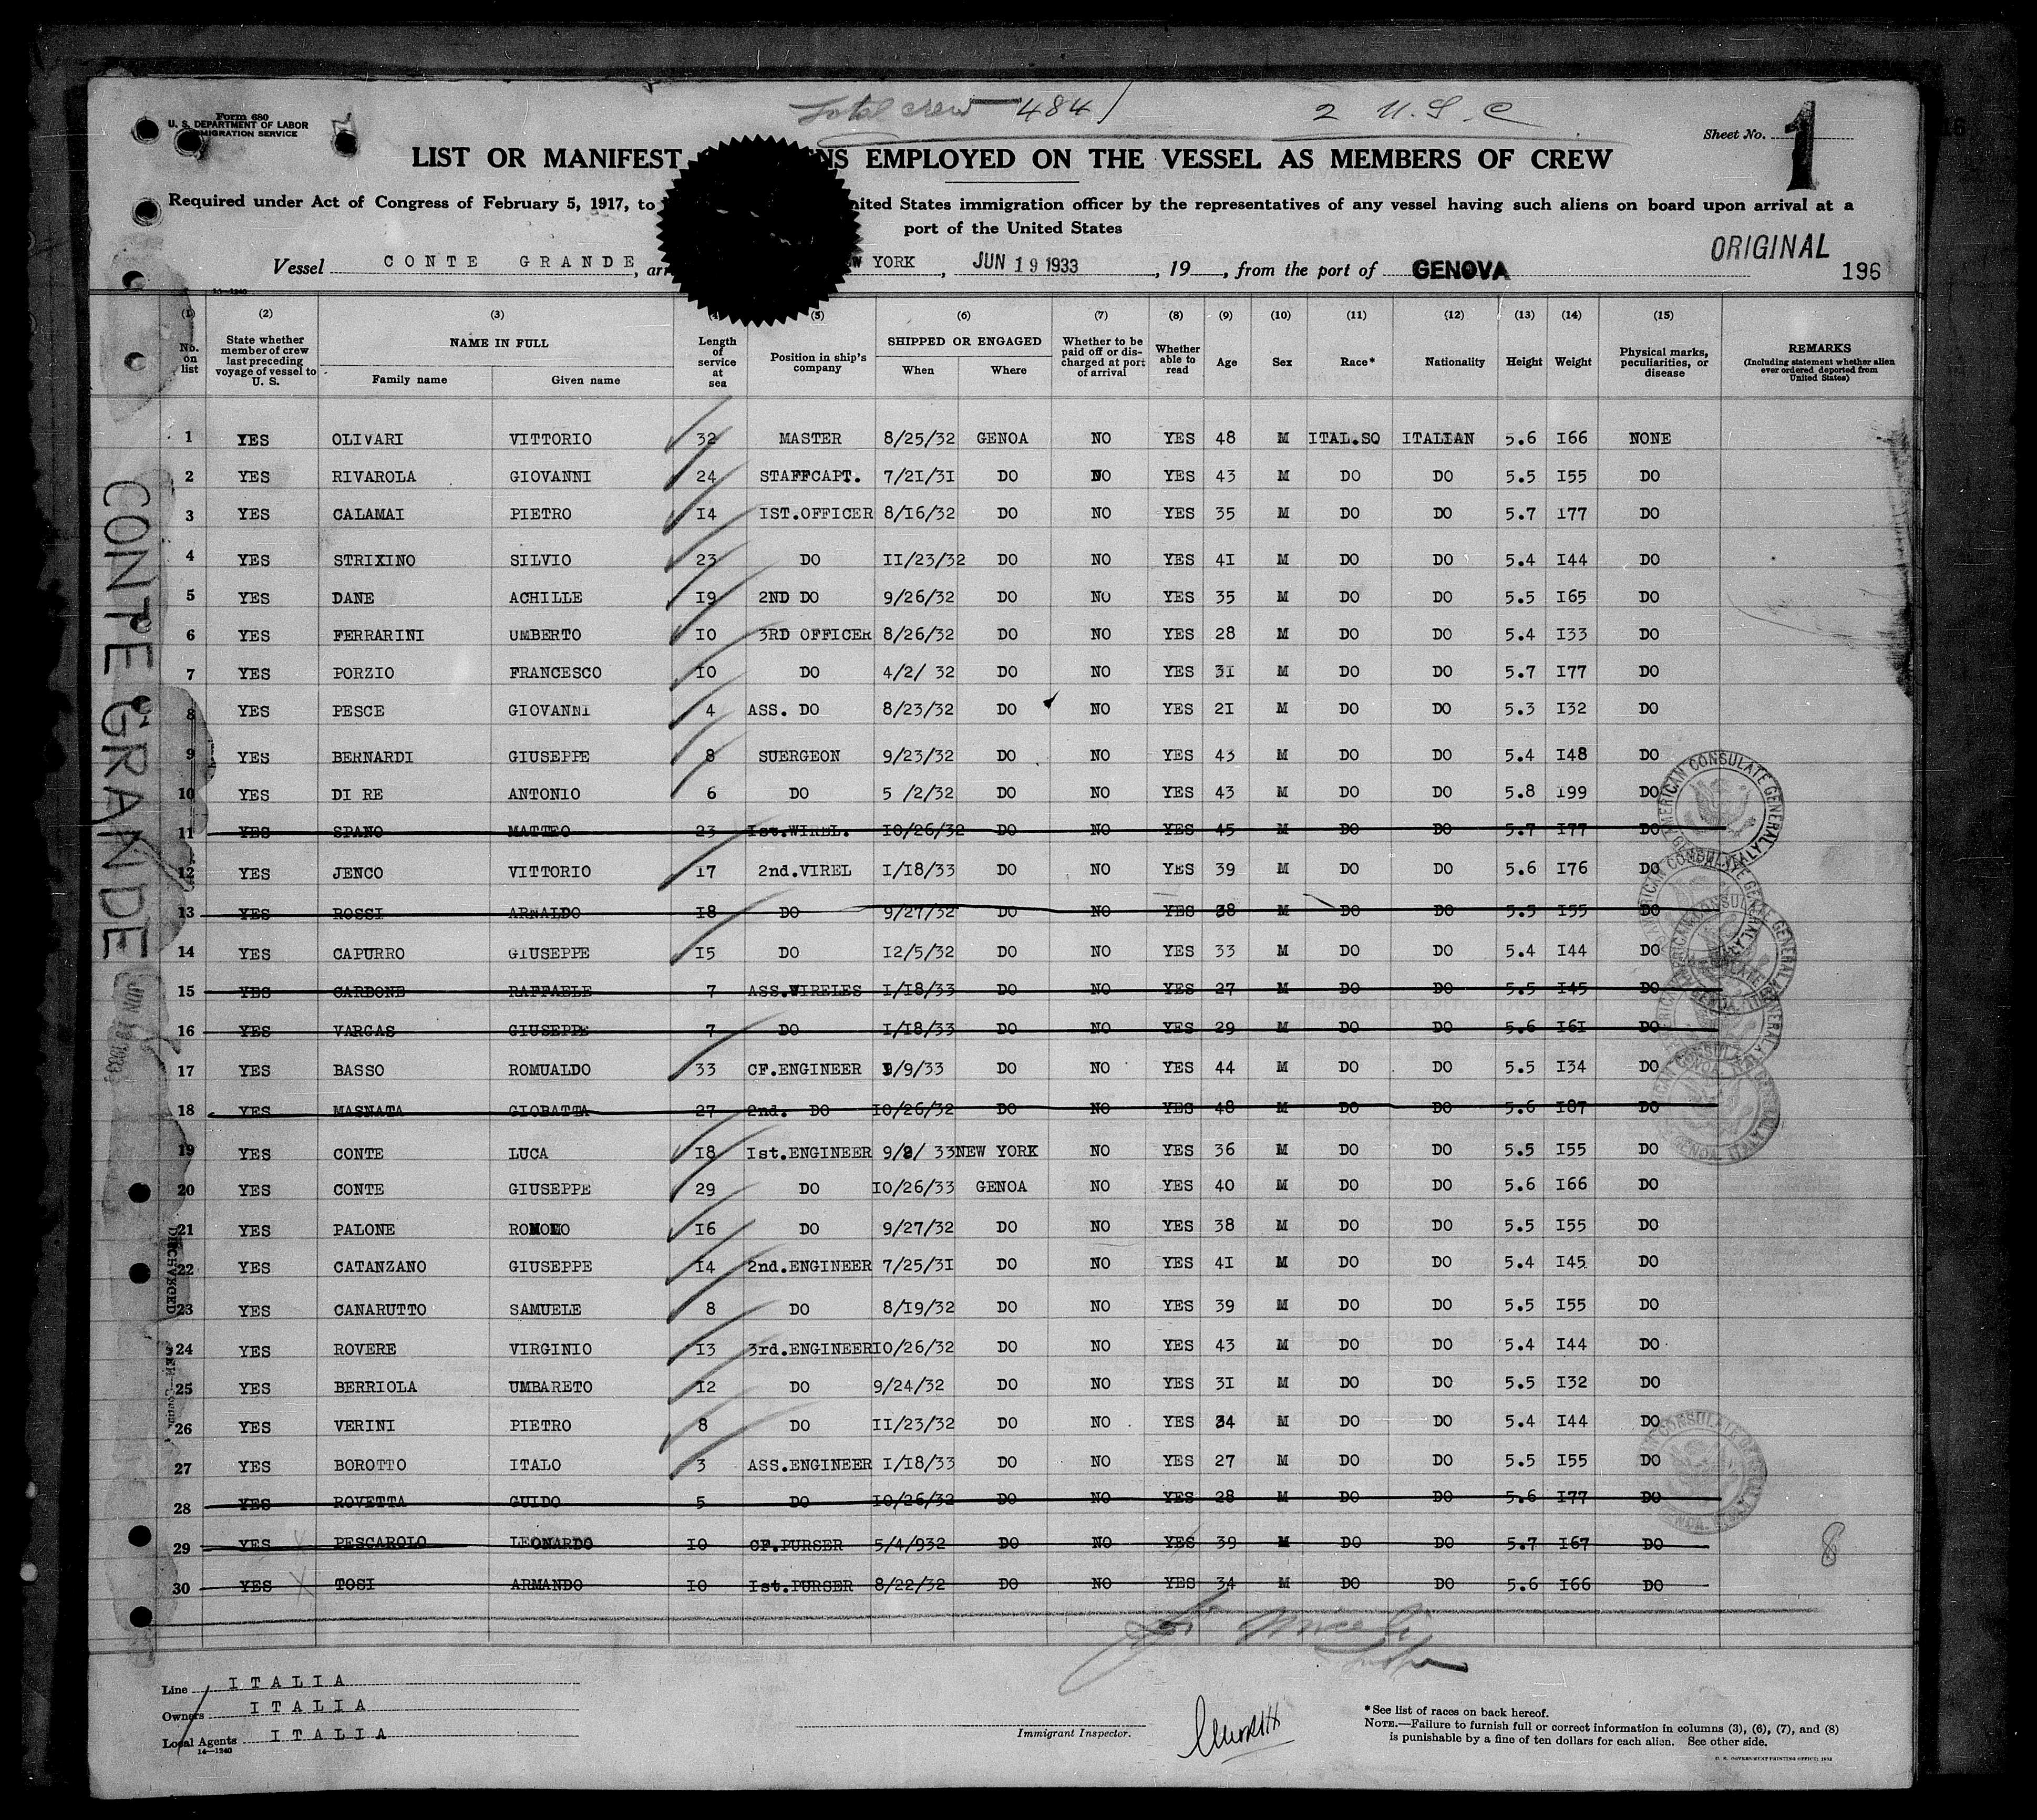 Total crew 484 2 U.S.C
Form 680
U. S. DEPARTMENT OF LABOR
IMMIGRATION SERVICE
Sheet No. 1
LIST OR MANIFEST EMPLOYED ON THE VESSEL AS MEMBERS OF CREW
Required under Act of Congress of February 5, 1917, to United States immigration officer by the representatives of any vessel having such aliens on board upon arrival at a
port of the United States
ORIGINAL
Vessel CONTE GRANDE, NEW YORK, JUN 19 1933, 19 , from the port of GENOVA 196
14—1240
(1) (2) (3) (5) (6) (7) (8) (9) (10) (11) (12) (13) (14) (15)
No. on list State whether member of crew last preceding voyage of vessel to U. S. NAME IN FULL Family name Given name Length of service at sea Position in ship's company SHIPPED OR ENGAGED When Where Whether to be paid off or discharged at port of arrival Whether able to read Age Sex Race* Nationality Height Weight Physical marks, peculiarities, or disease REMARKS (Including statement whether alien ever ordered deported from United States)
1 YES OLIVARI VITTORIO 32 MASTER 8/25/32 GENOA NO YES 48 M ITAL.SO ITALIAN 5.6 I66 NONE
2 YES RIVAROLA GIOVANNI 24 STAFFCAPT. 7/21/3I DO NO YES 43 M DO DO 5.5 I55 DO
3 YES CALAMAI PIETRO I4 IST.OFFICER 8/16/32 DO NO YES 35 M DO DO 5.7 I77 DO
4 YES STRIXINO SILVIO 23 DO II/23/32 DO NO YES 4I M DO DO 5.4 I44 DO
5 YES DANE ACHILLE I9 2ND DO 9/26/32 DO NO YES 35 M DO DO 5.5 I65 DO
6 YES FERRARINI UMBERTO IO 3RD OFFICER 8/26/32 DO NO YES 28 M DO DO 5.4 I33 DO
7 YES PORZIO FRANCESCO IO DO 4/2/ 32 DO NO YES 3I M DO DO 5.7 I77 DO
8 YES PESCE GIOVANNI 4 ASS. DO 8/23/32 DO NO YES 2I M DO DO 5.3 I32 DO
9 YES BERNARDI GIUSEPPE 8 SUERGEON 9/23/32 DO NO YES 43 M DO DO 5.4 I48 DO
10 YES DI RE ANTONIO 6 DO 5 /2/32 DO NO YES 43 M DO DO 5.8 I99 DO
11 YES SPANO MATTEO 23 Ist.WIREL. IO/26/32 DO NO YES 45 M DO DO 5.7 I77 DO
12 YES JENCO VITTORIO I7 2nd.VIREL I/I8/33 DO NO YES 39 M DO DO 5.6 I76 DO
13 YES ROSSI ARNALDO I8 DO 9/27/32 DO NO YES 38 M DO DO 5.5 I55 DO
14 YES CAPURRO GIUSEPPE I5 DO I2/5/32 DO NO YES 33 M DO DO 5.4 I44 DO
15 YES CARBONE RAFFAELE 7 ASS.WIRELES I/I8/33 DO NO YES 27 M DO DO 5.5 I45 DO
16 YES VARGAS GIUSEPPE 7 DO I/I8/33 DO NO YES 29 M DO DO 5.6 I6I DO
17 YES BASSO ROMUALDO 33 CF.ENGINEER 9/9/33 DO NO YES 44 M DO DO 5.5 I34 DO
18 YES MASNATA GIOBATTA 27 2nd. DO IO/26/32 DO NO YES 48 M DO DO 5.6 I87 DO
19 YES CONTE LUCA I8 Ist.ENGINEER 9/2/ 33 NEW YORK NO YES 36 M DO DO 5.5 I55 DO
20 YES CONTE GIUSEPPE 29 DO IO/26/33 GENOA NO YES 40 M DO DO 5.6 I66 DO
21 YES PALONE ROMOLO I6 DO 9/27/32 DO NO YES 38 M DO DO 5.5 I55 DO
22 YES CATANZANO GIUSEPPE I4 2nd.ENGINEER 7/25/3I DO NO YES 4I M DO DO 5.4 I45 DO
23 YES CANARUTTO SAMUELE 8 DO 8/I9/32 DO NO YES 39 M DO DO 5.5 I55 DO
24 YES ROVERE VIRGINIO I3 3rd.ENGINEER IO/26/32 DO NO YES 43 M DO DO 5.4 I44 DO
25 YES BERRIOLA UMBARETO I2 DO 9/24/32 DO NO YES 3I M DO DO 5.5 I32 DO
26 YES VERINI PIETRO 8 DO II/23/32 DO NO YES 34 M DO DO 5.4 I44 DO
27 YES BOROTTO ITALO 3 ASS.ENGINEER I/I8/33 DO NO YES 27 M DO DO 5.5 I55 DO
28 YES ROVETTA GUIDO 5 DO IO/26/32 DO NO YES 28 M DO DO 5.6 I77 DO
29 YES PESCAROLO LEONARDO IO CF.PURSER 5/4/932 DO NO YES 39 M DO DO 5.7 I67 DO
30 YES TOSI ARMANDO IO Ist.PURSER 8/22/32 DO NO YES 34 M DO DO 5.6 I66 DO
8
CONTE GRANDE
JUN 19 1933
DISCHARGED
AMERICAN CONSULATE GENERAL GENOA, ITALY
Line ITALIA
Owners ITALIA
Local Agents ITALIA
14—1240
Immigrant Inspector.
*See list of races on back hereof.
NOTE.—Failure to furnish full or correct information in columns (3), (6), (7), and (8)
is punishable by a fine of ten dollars for each alien. See other side.
U. S. GOVERNMENT PRINTING OFFICE: 1932